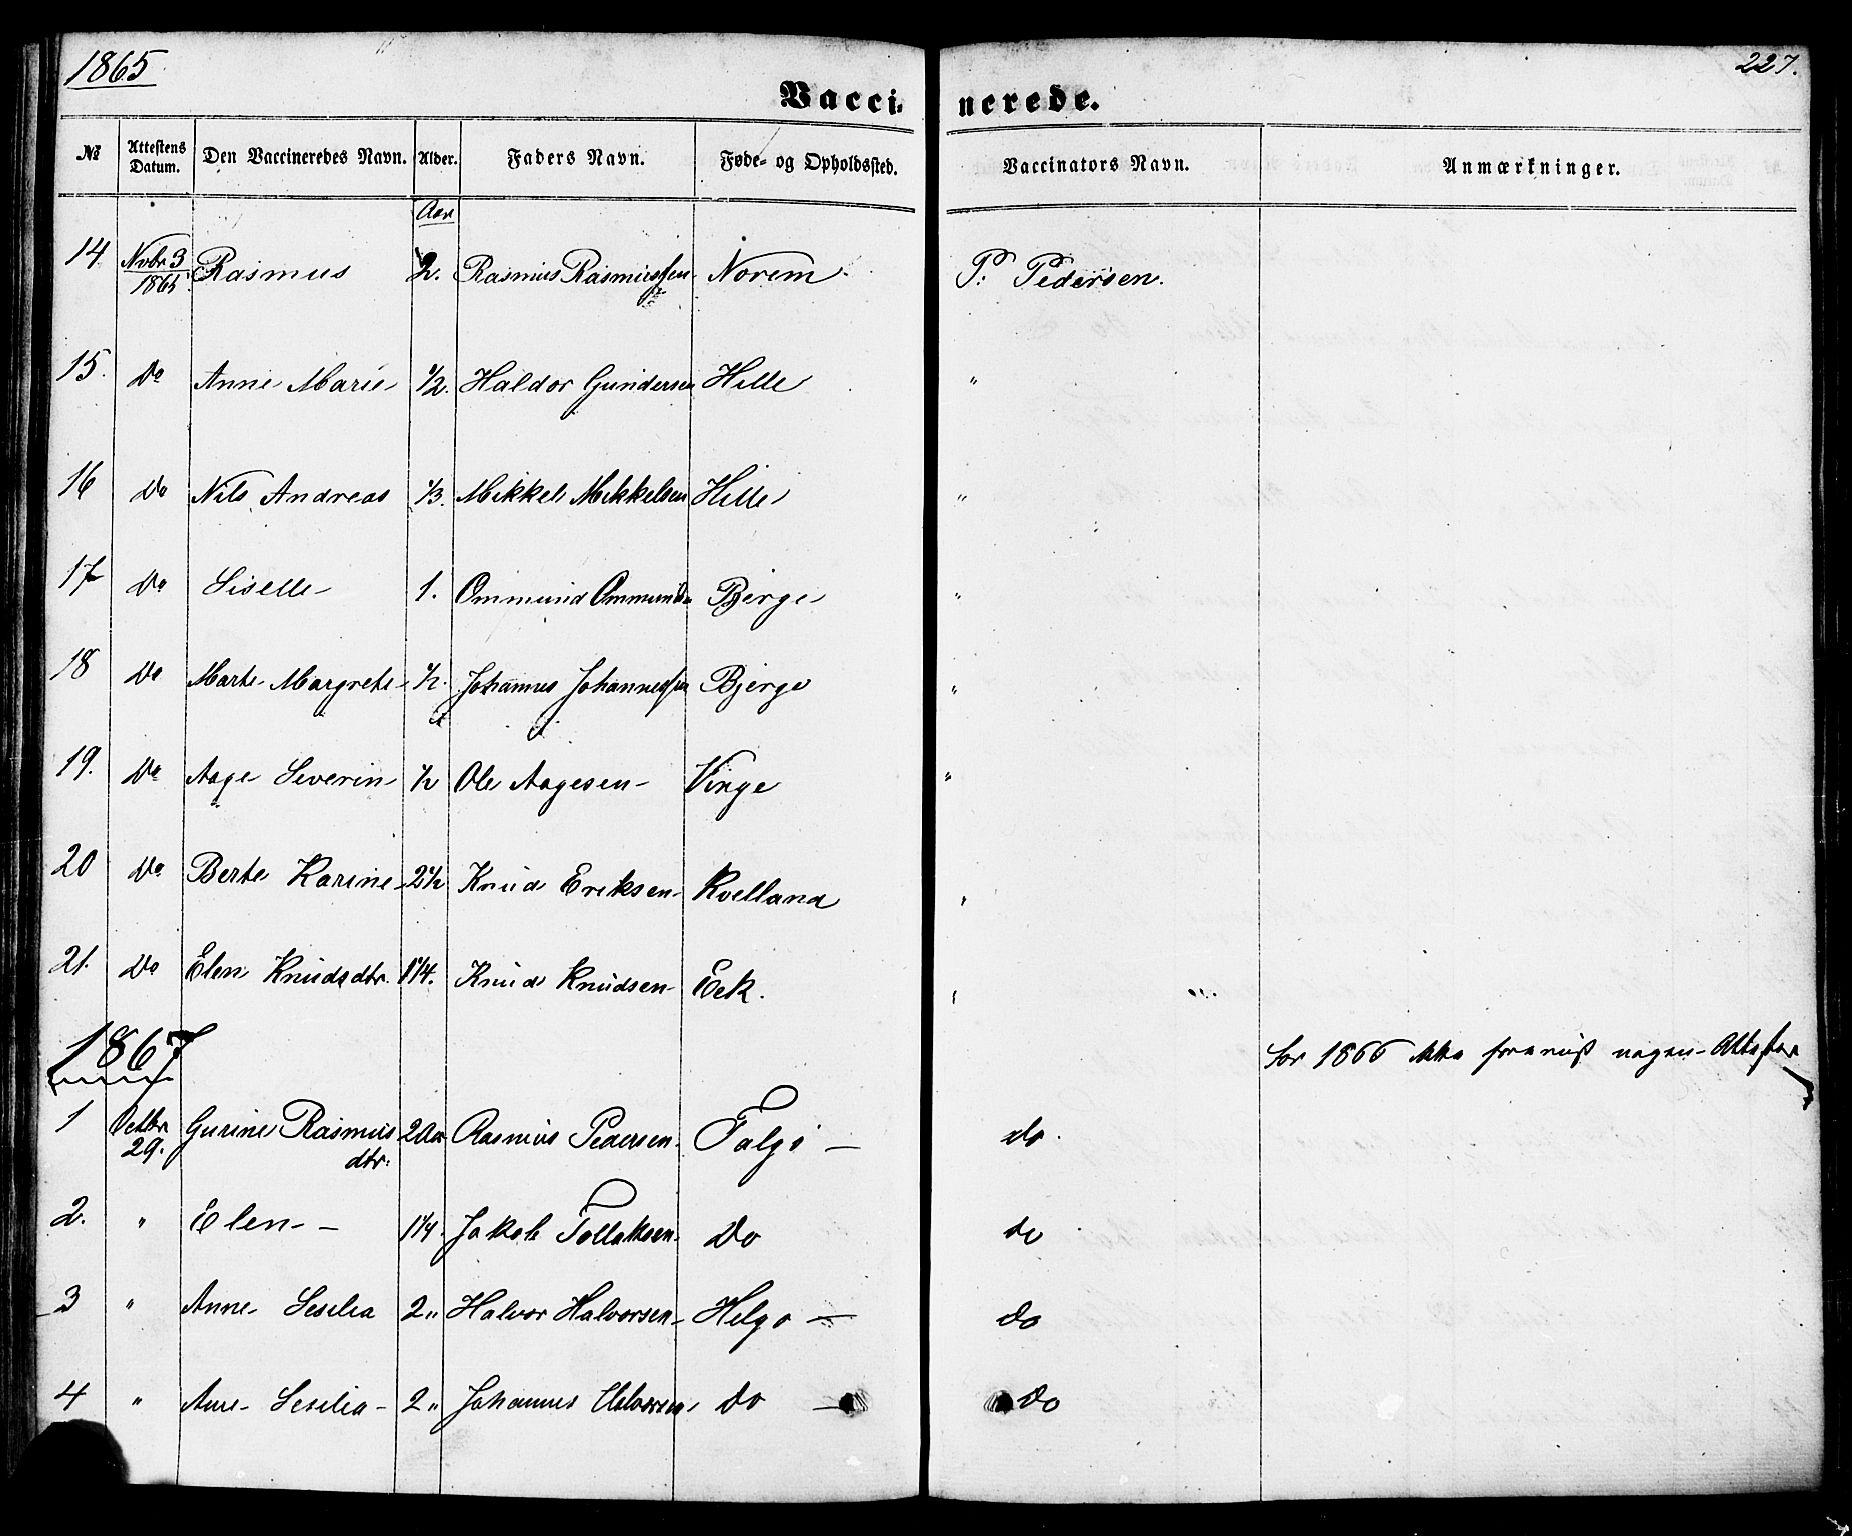 1865
227.
Vacci- nerede.
№ Attestens Datum. Den Vaccineredes Navn. Alder. Faders Navn. Føde- og Opholdssted. Vaccinators Navn. Anmærkninger.
Aar
14 Novbr 3 1865 Rasmus 2. Rasmus Rasmussen Norem P. Pedersen.
15. Do Anne Marie 1/2. Haldor Gundersen Hille "
16 Do Nils Andreas 1/3. Mikkel Mikkelsen Hille "
17 Do Siselle 1. Ommund Ommunds Bjerge "
18 Do Marte Margrete 1/2. Johannes Johannessen Bjerge "
19. Do Aage Severin 1/2 Ole Aagesen Vinge "
20 Do Berte Karine 2 1/2 Knud Eriksen Kvelland "
21. Do Elen Knudsdtr. 1 1/4. Knud Knudsen Eek. "
1867 for 1866 ikke nogen Attester
1 Octbr 29. Gurine Rasmus dtr. 2 Aar Rasmus Pedersen Talgø — do.
2. " Elen — 1 1/4. Jakob Tollaksen Do do
3 " Anne Sesilia 2 " Halvor Halvorsen Helgø — do
4 " Ane Sesilia 2 " Johannes Halvorsen do — do